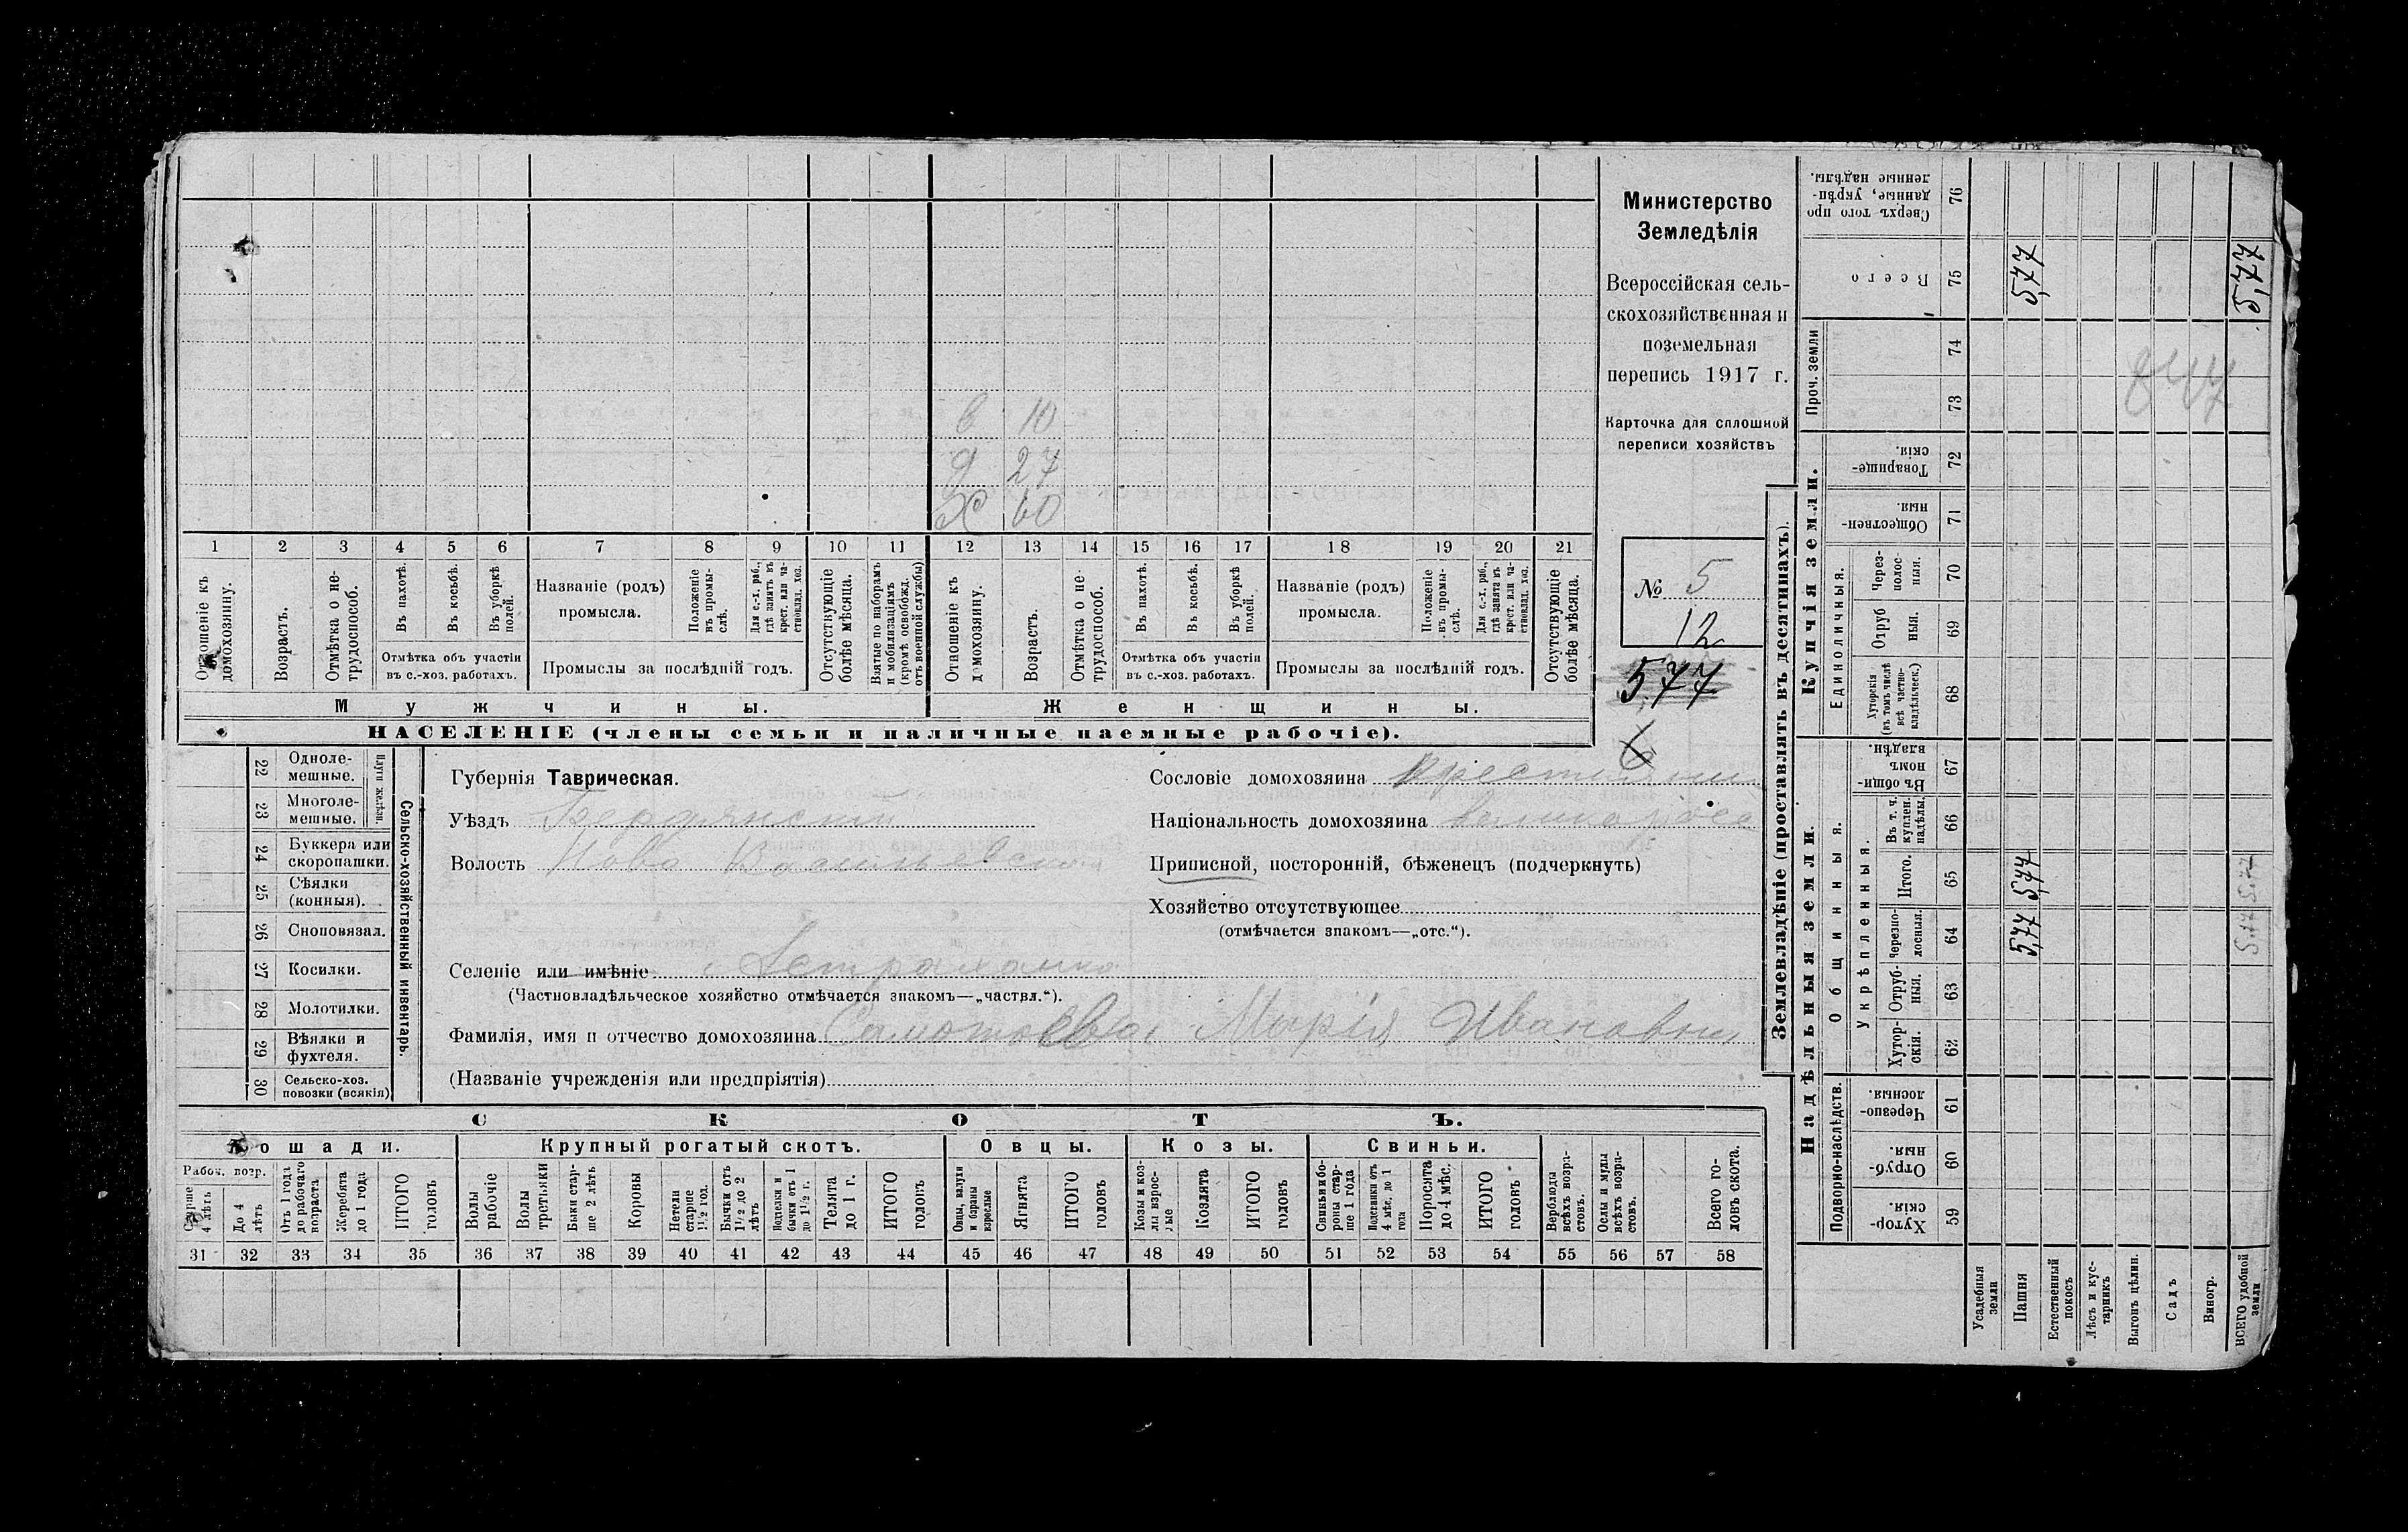 Министерство
Земледѣлія
Всероссійская сель-
скохозяйственная и
поземельная
перепись 1917 г.
Карточка для сплошной
переписи хозяйствъ
№ 5
12
5,77
6
в 10
д 27
Х 60
1 2 3 4 5 6 7 8 9 10 11 12 13 14 15 16 17 18 19 20 21
Отношеніе къ домохозяину.
Возрастъ.
Отмѣтка о не-трудоспособ.
Въ пахотѣ.
Въ косьбѣ.
Въ уборкѣ полей.
Отмѣтка объ участіи
въ с.-хоз. работахъ.
Названіе (родъ)
промысла.
Положеніе въ промы-слѣ.
Для с.-х. раб., гдѣ занятъ въ крест. или ча-стновлад. хоз.
Промыслы за послѣдній годъ.
Отсутствующіе болѣе мѣсяца.
Взятые по наборамъ и мобилизаціямъ (кромѣ освобожд. отъ военной службы)
Отношеніе къ домохозяину.
Возрастъ.
Отмѣтка о не-трудоспособ.
Въ пахотѣ.
Въ косьбѣ.
Въ уборкѣ полей.
Отмѣтка объ участіи
въ с.-хоз. работахъ.
Названіе (родъ)
промысла.
Положеніе въ промы-слѣ.
Для с.-х. раб., гдѣ занятъ въ крест. или ча-стновлад. хоз.
Промыслы за послѣдній годъ.
Отсутствующіе болѣе мѣсяца.
Мужчины.
Женщины.
НАСЕЛЕНІЕ (члены семьи и наличные наемные рабочіе).
22 Одноле-мешные.
23 Многоле-мешные.
Плуги желѣзн.
24 Буккера или скоропашки.
25 Сѣялки (конныя).
26 Сноповязал.
27 Косилки.
28 Молотилки.
29 Вѣялки и фухтеля.
30 Сельско-хоз. повозки (всякія)
Сельско-хозяйственный инвентарь.
Губернія Таврическая.
Уѣздъ Бердянскій
Волость Ново Васильевск
Селеніе или имѣніе с Астраханка
(Частновладѣльческое хозяйство отмѣчается знакомъ—„частвл.“).
Фамилія, имя и отчество домохозяина Марія Ивановна
(Названіе учрежденія или предпріятія)
Сословіе домохозяина крестьянин
Національность домохозяина великоросс
Приписной, посторонній, бѣженецъ (подчеркнуть)
Хозяйство отсутствующее
(отмѣчается знакомъ—„отс.“).
СКОТЪ.
Лошади.
Крупный рогатый скотъ.
Овцы.
Козы.
Свиньи.
Рабоч. возр.
Старше 4 лѣтъ
До 4 лѣтъ
Отъ 1 года до рабочаго возраста
Жеребята до 1 года
ИТОГО головъ
Волы рабочіе
Волы третьяки
Быки стар-ше 2 лѣтъ
Коровы
Нетели старше 1½ год.
Бычки отъ 1½ до 2 лѣтъ
Подтелки и бычки отъ 1 до 1½ г.
Телята до 1 г.
ИТОГО головъ
Овцы, валухи и бараны взрослые
Ягнята
ИТОГО головъ
Козы и коз-лы взрос-лые
Козлята
ИТОГО головъ
Свиньи и бо-роны стар-ше 1 года
Подсвинки отъ 4 мѣс. до 1 года
Поросята до 4 мѣс.
ИТОГО головъ
Верблюды всѣхъ возра-стовъ.
Ослы и мулы всѣхъ возра-стовъ.
Всего го-ловъ скота.
31 32 33 34 35 36 37 38 39 40 41 42 43 44 45 46 47 48 49 50 51 52 53 54 55 56 57 58
Землевладѣніе (проставлять въ десятинахъ).
Надѣльныя земли.
Купчія земли.
Проч. земли
Подворно-наслѣдств.
Общинныя.
Укрѣпленныя.
Единоличныя.
Хутор-скія. 59
Отруб-ныя. 60
Черезпо-лосныя. 61
Хутор-скія. 62
Отруб-ныя. 63
Черезпо-лосныя. 64
Итого. 65
Въ т. ч. куплен. надѣлы. 66
Въ общин-номъ владѣн. 67
Хуторскія (въ томъ числѣ всѣ частно-владѣльческ.) 68
Отруб ныя. 69
Через-полос-ныя. 70
Обществен-ныя. 71
Товарище-скія. 72
73
74
Всего 75
Сверхъ того про данные, укрѣп-ленные надѣлы. 76
Усадебныя земли
Пашня 5,77 5,77 5,77
Естественный покосъ
Лѣсъ и кус-тарникъ
Выгонъ цѣлин.
Садъ
Виногр.
ВСЕГО удобной земли 5,77 5,77 5,77